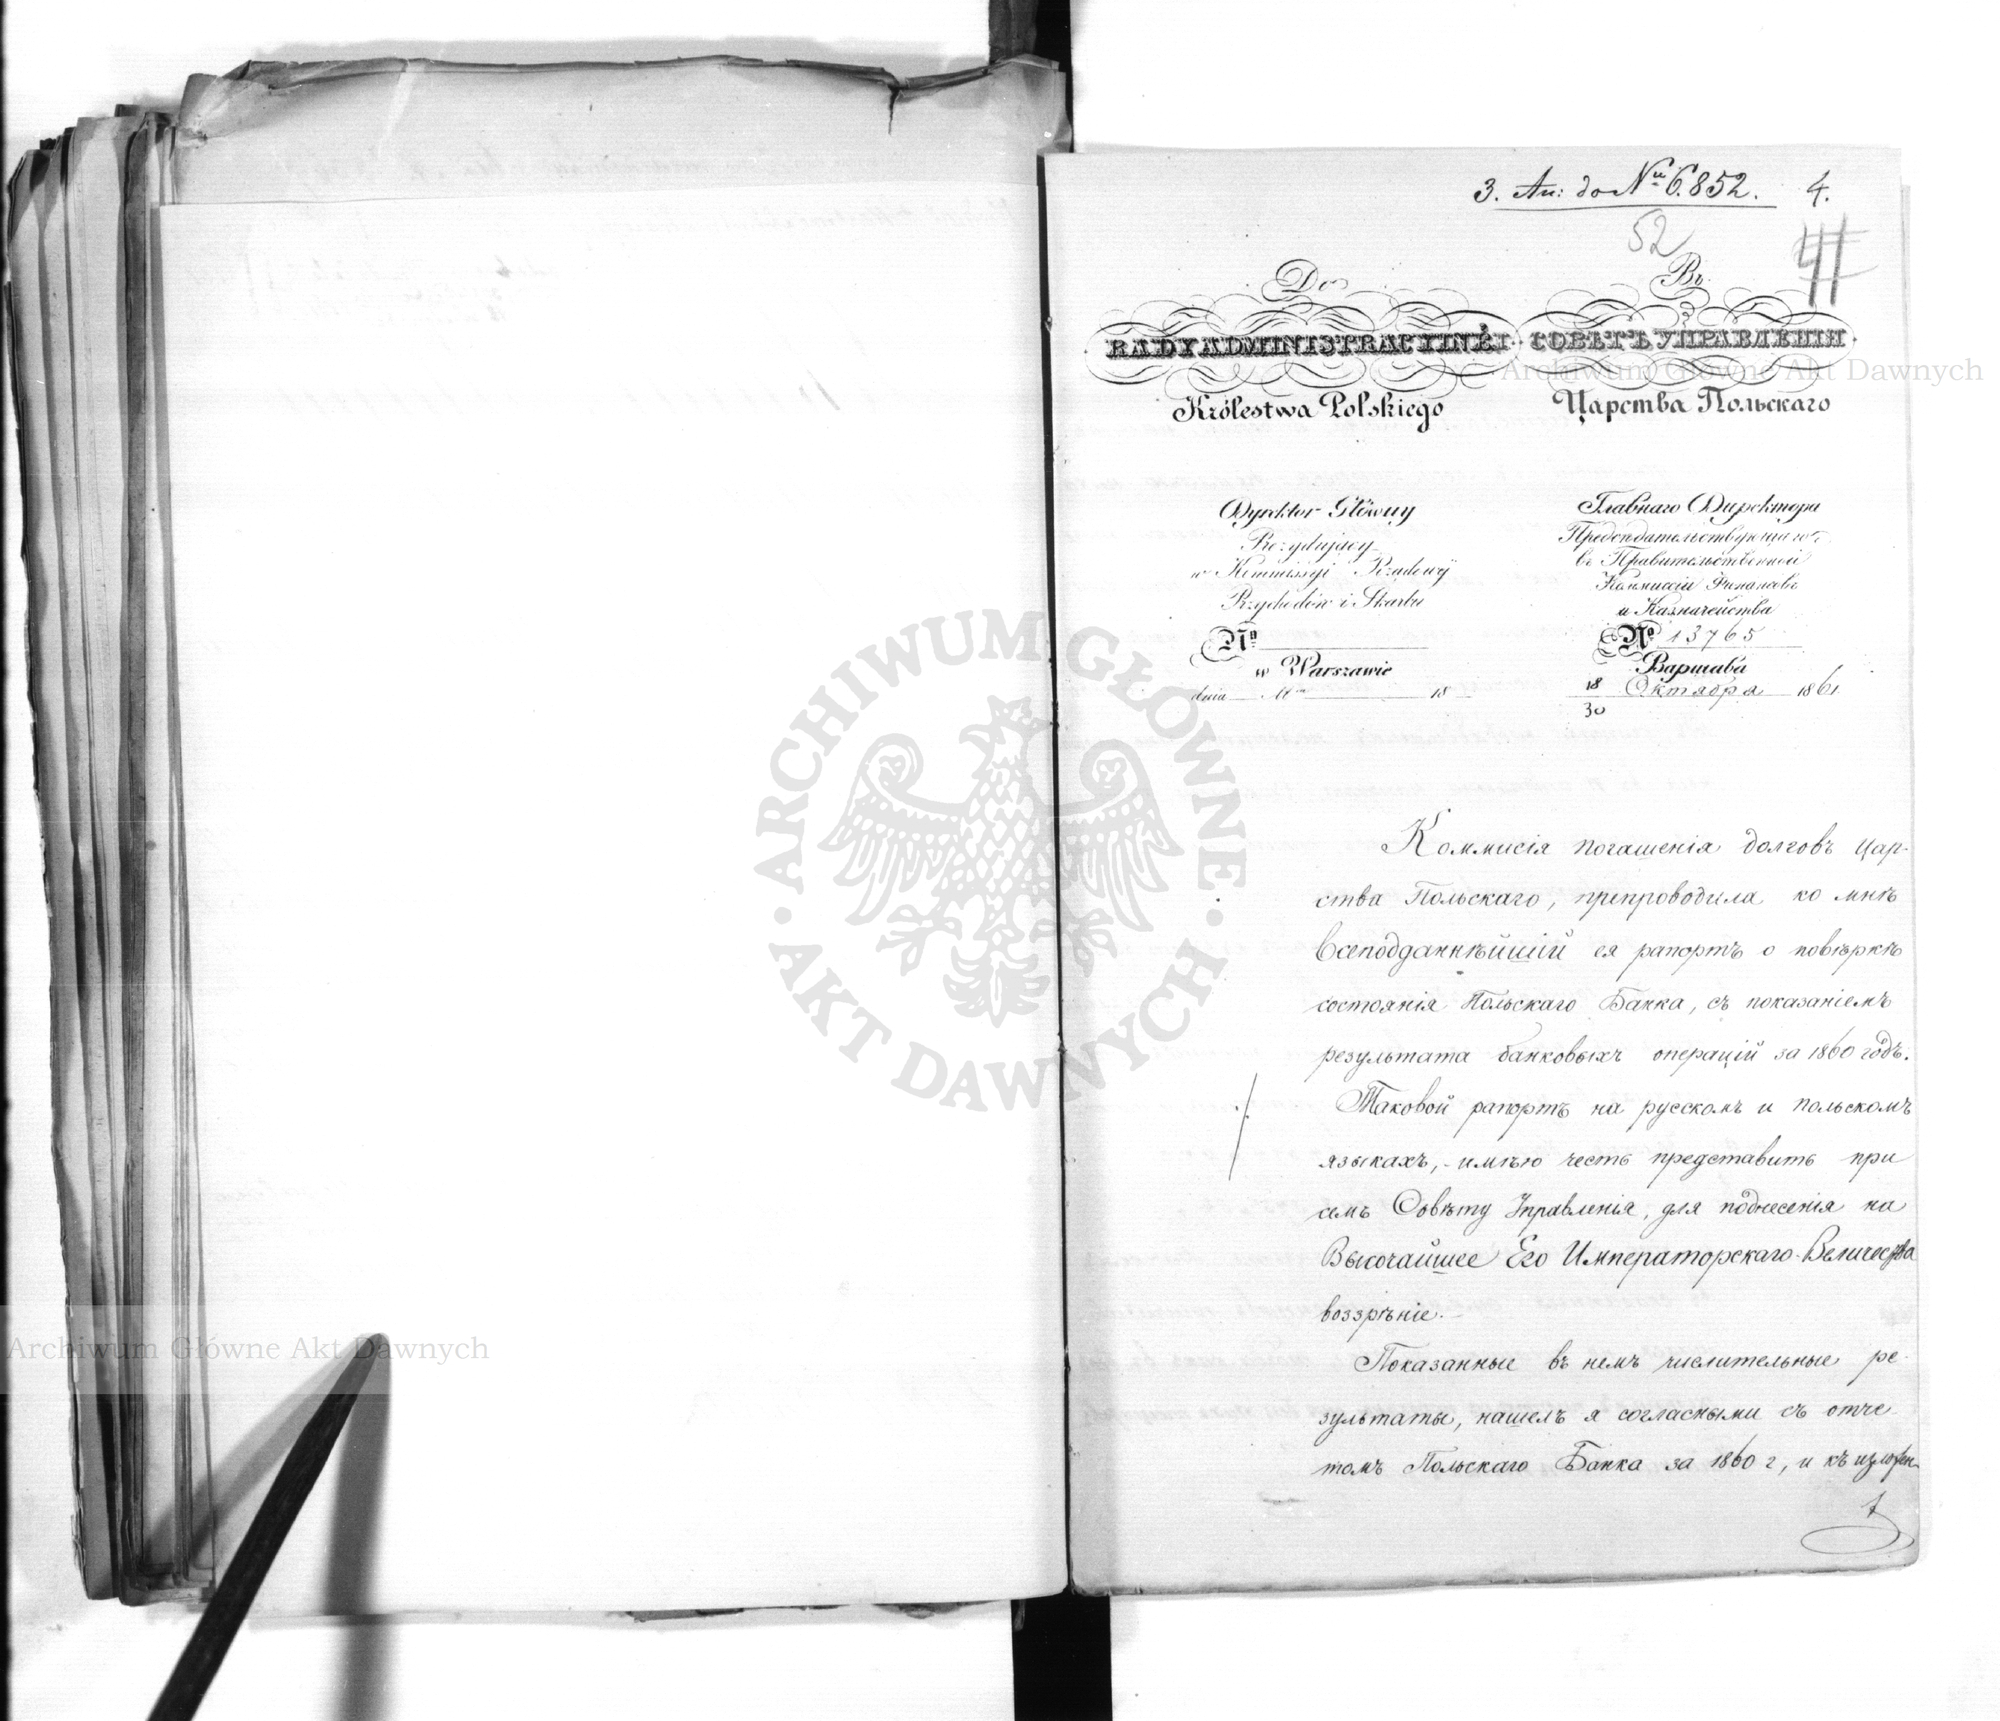 3. An: do Nu 6.852. 4.
52
Do
RADY ADMINISTRACYINÉI
Królestwa Polskiego
Въ
СОВѢТЪ УПРАВЛЕНІЯ
Царства Польскаго
Dyrektor Główny
Prezydujący
w Kommissyi Rządowéj
Przychodów i Skarbu
No
w Warszawie
dnia Mca 18
Главнаго Директора
Предсѣдательствующаго
въ Правительственной
Коммисіи Финансовъ
и Казначейства
No 13765
Варшава
18/30 Октября 1861
Коммисія погашенія долговъ Цар-
ства Польскаго, препроводила ко мнѣ
Всеподданнѣйшій ея рапортъ о повѣркѣ
состоянія Польскаго Банка, съ показаніемъ
результата банковыхъ операцій за 1860 годъ.
Таковой рапортъ на русскомъ и польскомъ
языкахъ, имѣю честь представить при
семъ Совѣту Управленія, для поднесенія на
Высочайшее Его Императорскаго Величества
воззрѣніе.
Показанные въ немъ числительные ре-
зультаты, нашелъ я согласными съ отче-
томъ Польскаго Банка за 1860 г, и къ изложен-
ARCHIWUM GŁÓWNE
AKT DAWNYCH
Archiwum Główne Akt Dawnych
Archiwum Główne Akt Dawnych